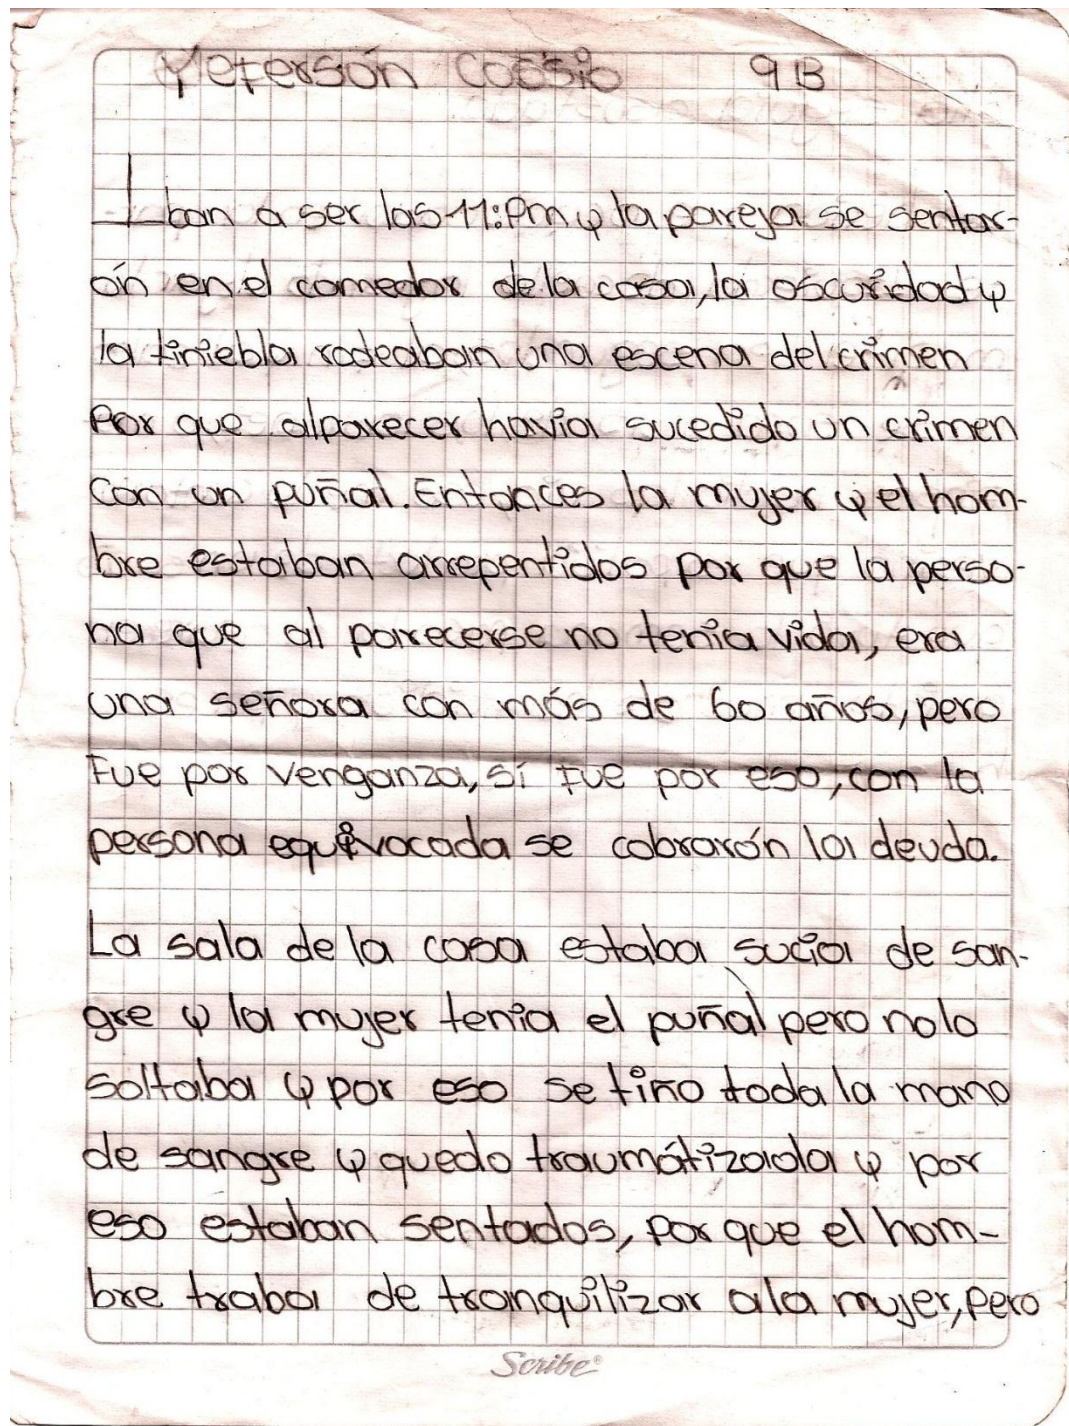 Yeferson Cossio 9B
Iban a ser las 11:Pm y la pareja se sentar-
ón en el comedor de la casa, la oscuridad y
la tiniebla rodeaban una escena del crimen
Por que alparecer havia sucedido un crimen
con un puñal. Entonces la mujer y el hom-
bre estaban arrepentidos por que la perso-
na que al parecerse no tenia vida, era
una señora con más de 60 años, pero
Fue por venganza, sí fue por eso, con la
persona equivocada se cobrarón la deuda.
La sala de la casa estaba sucia de san-
gre y la mujer tenia el puñal pero nolo
soltaba y por eso se tiño toda la mano
de sangre y quedo traumátizada y por
eso estaban sentados, por que el hom-
bre traba de tranquilizar ala mujer, pero
Scribe®